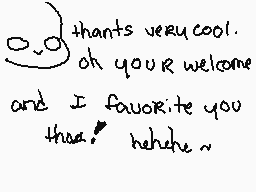 thants very cool.
oh your welcome
and I favorite you
thoa! hehehe ~